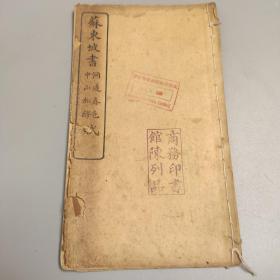 蘇東坡書洞庭春色賦
中山松醪賦
商務印書
館陳列品